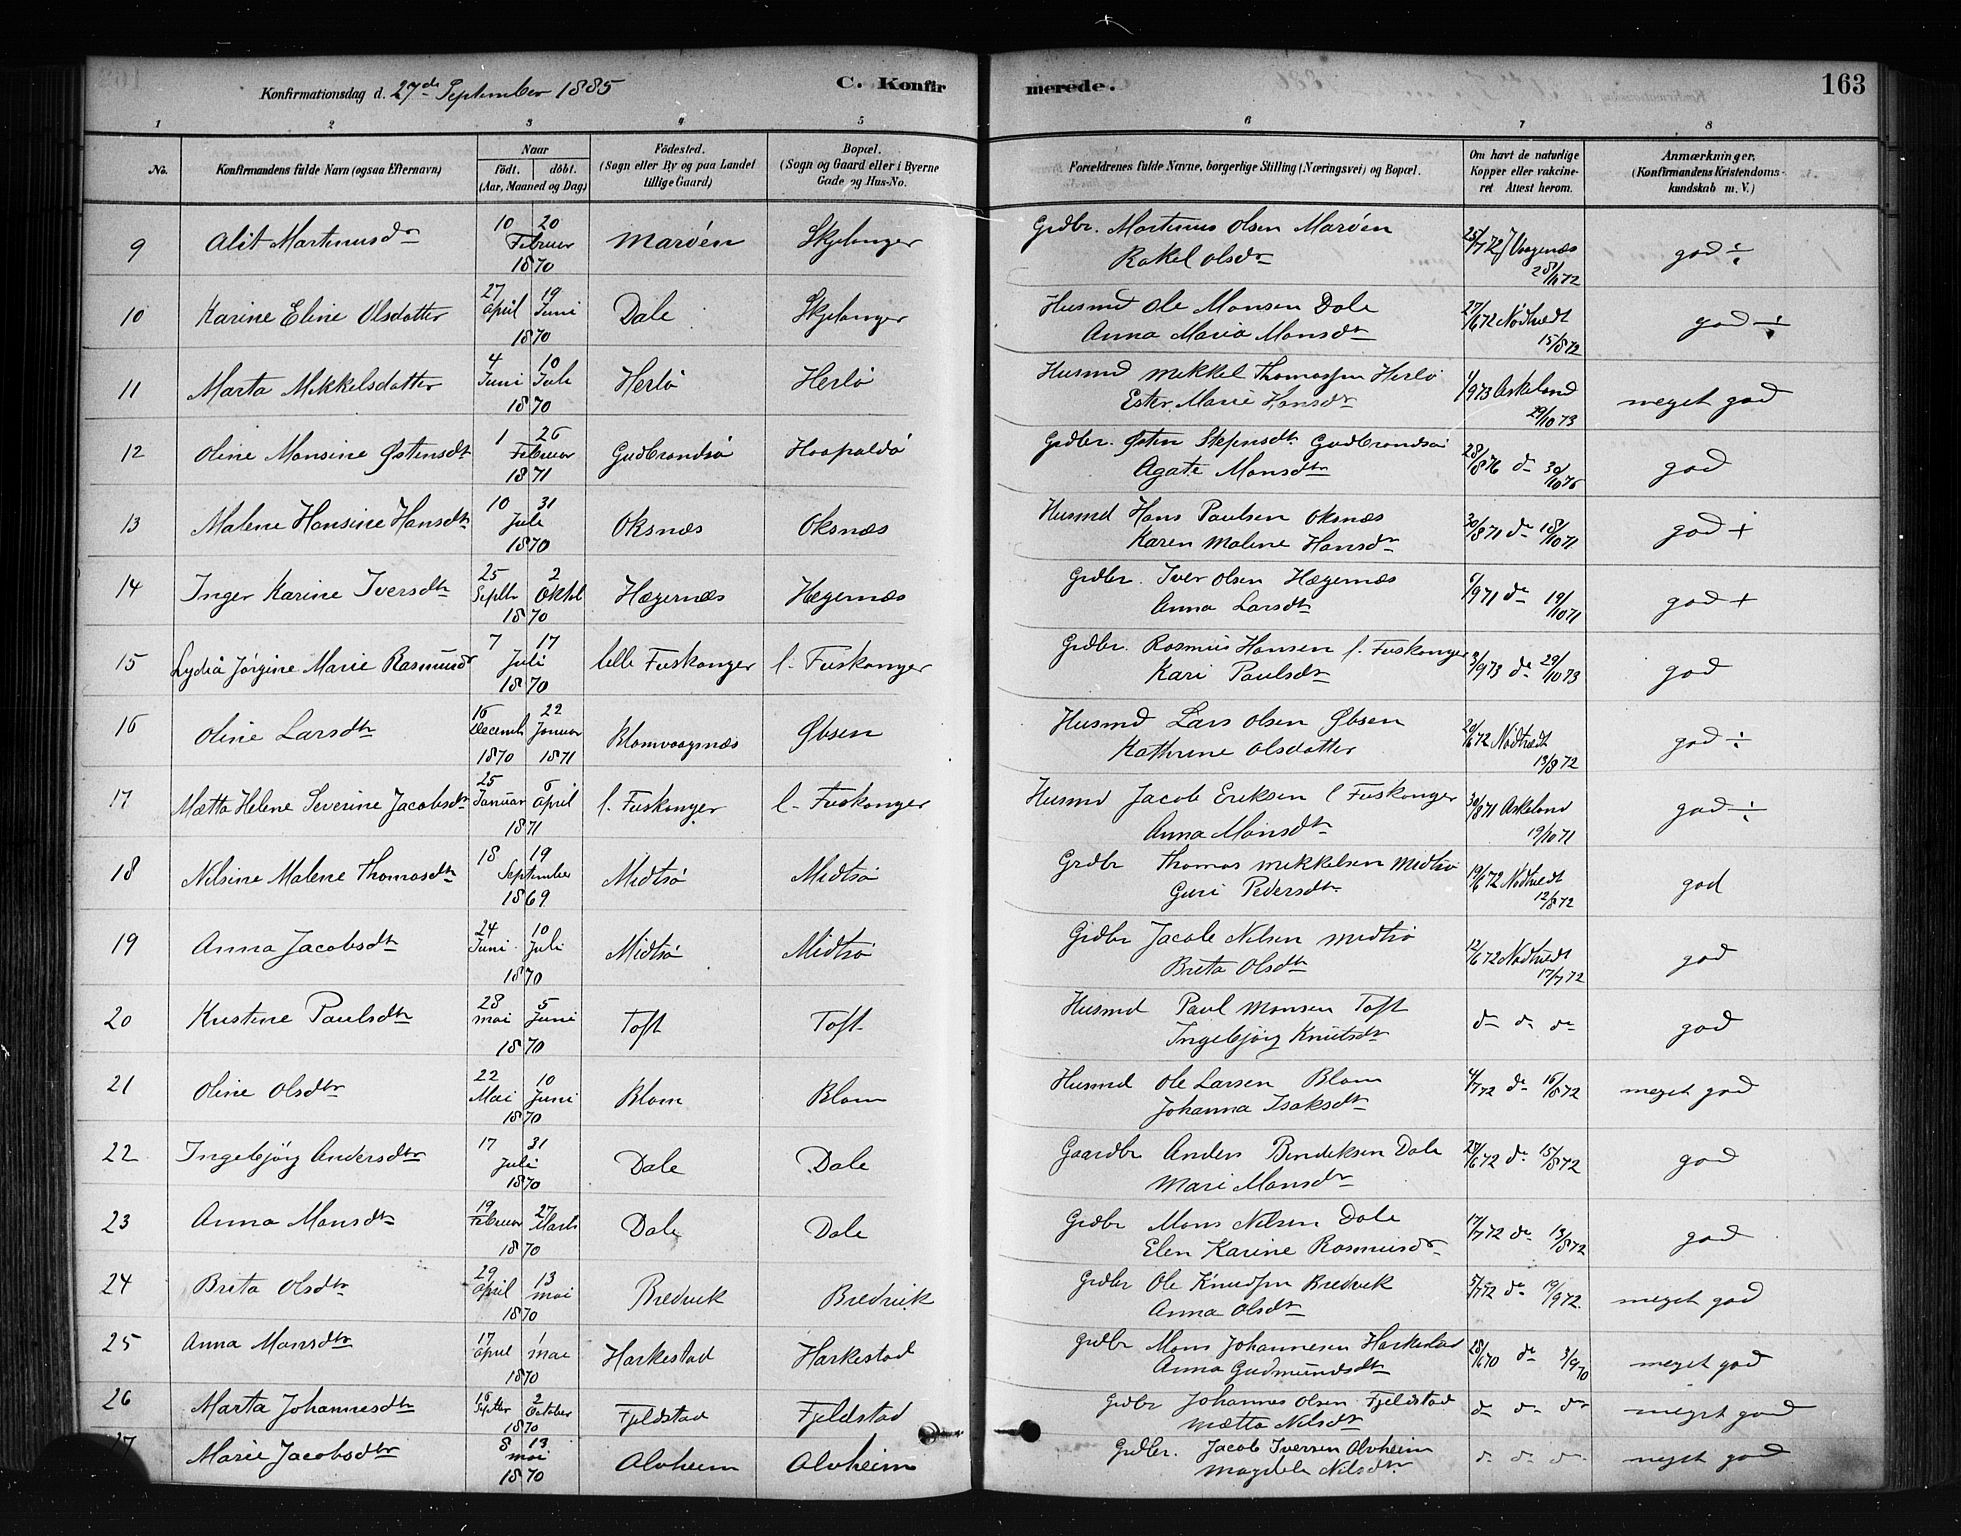 Konfirmationsdag d. 27de September 1885 C. Konfirmerede. 163
1 2 3 4 5 6 7 8
No. Konfirmandens fulde Navn (ogsaa Efternavn) Naar født. døbt. (Aar, Maaned og Dag) Fødested. (Sogn eller By og paa Landet tillige Gaard) Bopæl. (Sogn og Gaard eller i Byerne Gade og Hus-No. Forældrenes fulde Navne, borgerlige Stilling (Næringsvei) og Bopæl. Om havt de naturlige Kopper eller vakcineret. Attest herom. Anmærkninger. (Konfirmandens Kristendomskundskab m. V.)
9 Alit Martinusdr 10 20 Februar 1870 Marøen Skjelanger Grdbr. Martinus Olsen Marøen 25/7 72 Vaagenæs
Rakel Olsdr god ÷
10 Karine Eline Olsdatter 27 April 19 Juni 1870 Dale Skjelanger Husmd Ole Monsen Dale 27/6 72 Nødtvedt 15/8 72
Anna Maria Monsdtr god ÷
11 Marta Mikkelsdatter 4 Juni 10 Juli 1870 Herlø Herlø Husmd Mikkel Thomassen Herlø 1/9 73 Askeland 29/10 73
Ester Marie Hansdr meget god
12 Oline Monsine Østensdtr 1 26 Februar 1871 Gudbrandsø Grdbr. Østen Gudbrandsø 28/8 76 do 30/10 76
Agate Monsdtr god
13 Malene Hansine Hansdtr 10 31 Juli 1870 Oksnæs Oksnæs Husmd Hans Paulsen Oksnæs 30/8 71 do 18/10 71
Karen Malene Hansdr god +
14 Inger Karine Iversdtr 25 Septbr 2 Oktob 1870 Hægernæs Hægernæs Grdbr. Iver Olsen Hægernæs 6/9 71 do 19/10 71
Anna Larsdtr god +
15 Lydia Jørgine Marie Rasmusdr 7 17 Juli 1870 lille Fuskanger l. Fuskanger Grdbr. Rasmus Hansen l. Fuskanger 3/9 73 do 29/10 73
Kari Paulsdtr god
16 Oline Larsdtr 16 Decemb 1870 22 Januar 1871 Blomvaagsnæs Øbsen Husmd Lars Olsen Øbsen 20/6 72 Nødtvedt 13/8 72
Kathrine Olsdatter god ÷
17 Mætta Helene Severine Jacobsdr 25 Januar 6 April 1871 l. Fuskanger l. Fuskanger Husmd Jacob Eriksen l Fuskanger 30/8 71 Askeland 19/10 71
Anna Monsdtr god ÷
18 Nilsine Malene Thomasdtr 18 19 September 1869 Midtsø Midtsø Grdbr Thomas Mikkelsen Midtsø 19/6 72 Nødtvedt 12/8 72
Guri Pedersdtr god
19 Anna Jacobsdtr 24 Juni 10 Juli 1870 Midtsø Midtsø Grdbr Jacob Nilsen Midtsø 12/6 72 Nødtvedt 17/7 72
Brita Olsdtr god
20 Kristine Paulsdtr 28 Mai 5 Juni 1870 Toft Toft Husmd Paul Monsen Toft do do do
Ingebjørg Knutsdtr god
21 Oline Olsdtr 22 Mai 10 Juni 1870 Blom Blom Husmd Ole Larsen Blom 4/7 72 do 16/8 72
Johanna Isaksdtr meget god
22 Ingebjørg Andersdtr 17 31 Juli 1870 Dale Dale Gaardbr Anders Bendiksen Dale 25/6 72 do 15/8 72
Mari Monsdr god
23 Anna Monsdtr 19 Februar 27 Marts 1870 Dale Dale Grdbr Mons Nilsen Dale 17/7 72 do 13/8 72
Elen Karine Rasmusdr god
24 Brita Olsdtr 29 April 13 Mai 1870 Bredvik Bredvik Grdbr Ole Knudsen Bredvik 5/7 72 do 19/9 72
Anna Olsdtr meget god
25 Anna Monsdtr 17 April 1 Mai 1870 Harkestad Harkestad Grdbr Mons Johannesen Harkestad 28/6 70 do 3/9 70
Anna Gudmundsdtr meget god
26 Marta Johannesdtr 16 Septbr 2 October 1870 Fjeldstad Fjeldstad Grdbr Johannes Olsen Fjeldstad do do do
Mætta Nilsdtr meget god
27 Marie Jacobsdtr 8 13 Mai 1870 Alvheim Alvheim Grdbr. Jacob Iversen Alvheim do do do
Magdele Nilsdtr meget god